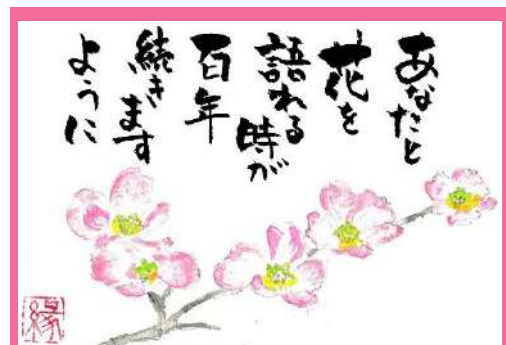 あなたと
花を
語れる
時が
百年
続きます
ように
縁